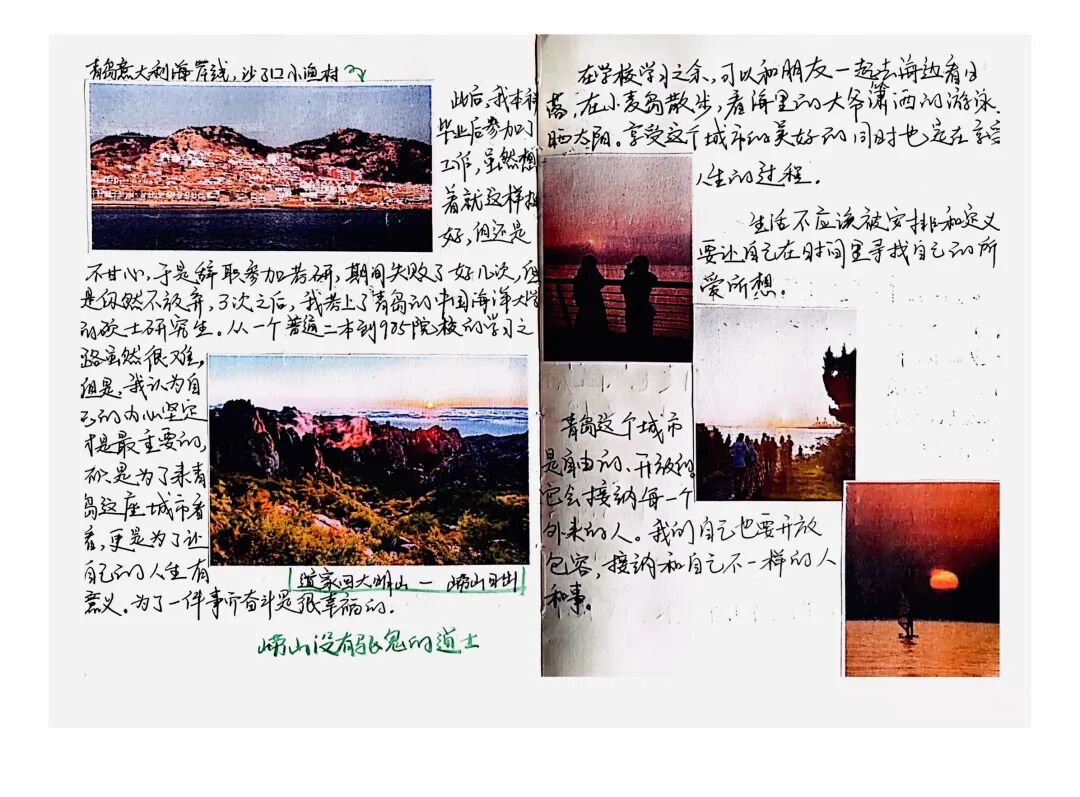 青岛意大利海岸线，沙子口小渔村
此后，我本科
毕业后参加了
工作，虽然想
着就这样挺
好，但还是
不甘心，于是辞职参加考研，期间失败了好几次，但
是仍然不放弃，3次之后，我考上了青岛的中国海洋大学
的硕士研究生。从一个普通二本到985院校的学习之
路虽然很难，
但是，我认为自
己的内心坚定
才是最重要的，
不只是为了来青
岛这座城市看
看，更是为了让
自己的人生有
意义。为了一件事而奋斗是很幸福的.
道家四大名山 — 崂山日出
崂山没有驱鬼的道士
在学校学习之余，可以和朋友一起去海边看日
落，在小麦岛散步，看海里的大爷潇洒的游泳，
晒太阳。享受这个城市的美好的同时也是在享受
人生的过程。
生活不应该被安排和定义
要让自己在时间里寻找自己的所
爱所想.
青岛这个城市
是自由的、开放的。
它会接纳每一个
外来的人。我的自己也要开放
包容，接纳和自己不一样的人
和事。